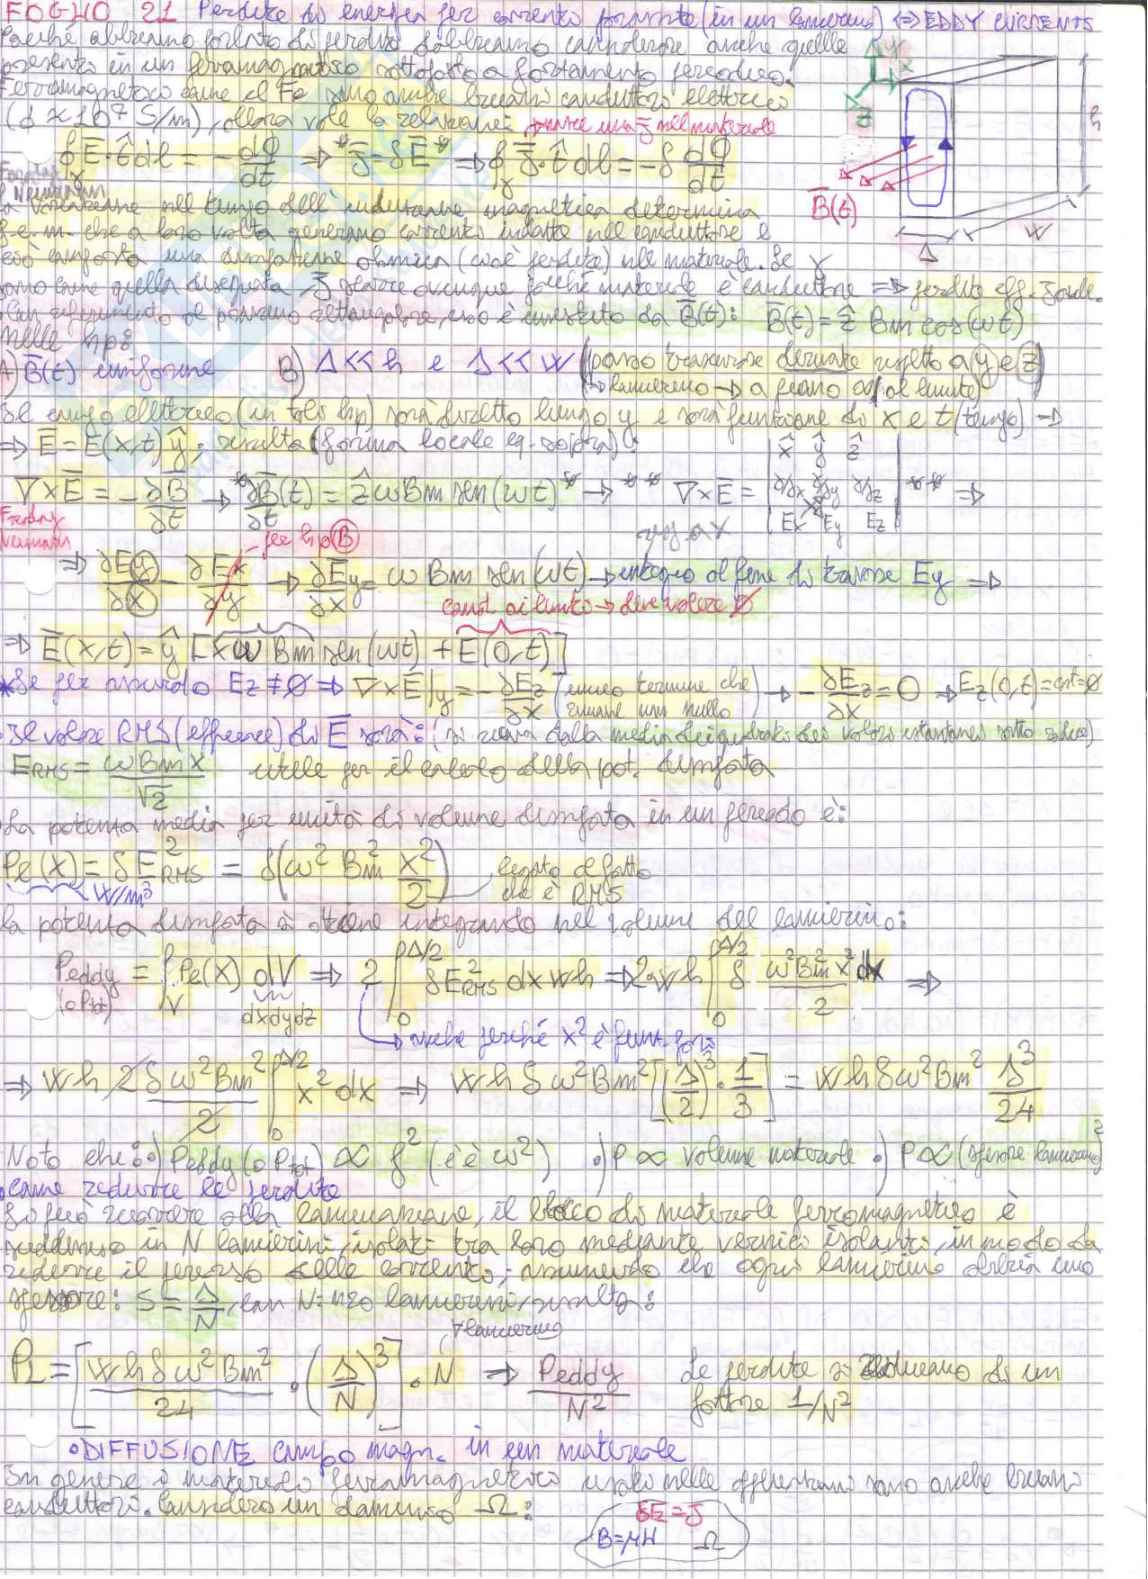 FOGLIO 21 Perdite di energia per corrente parassite (in un lamierino) ⇔ EDDY CURRENTS
Poiché abbiamo parlato di perdite dobbiamo considerare anche quelle
presenti in un ferromagnetico sottoposto a funzionamento periodico.
Ferromagnetico come il Fe sono anche buoni conduttori elettrici
(δ ≈ 10^7 S/m), allora vale la relazione: nasce una J nel materiale
∮γ E·t dl = -dΦ/dt ⇒ * J = δE * ⇒ ∮γ J·t dl = -δ dΦ/dt
B(t)
Δ W h
Faraday Neumann
la variazione nel tempo dell'induzione magnetica determina
f.e.m. che a loro volta generano correnti indotte nel conduttore e
ciò comporta una dissipazione ohmica (cioè perdite) nel materiale. Se γ
sono come quella disegnata, J scorre ovunque poiché materiale è conduttore ⇒ perdita eff. Joule.
Con riferimento al percorso rettangolare, esso è investito da B(t): B(t) = ẑ Bm cos(ωt)
Nelle hp:
A) B(t) uniforme B) Δ << h e Δ << W (posso trascurare derivate rispetto a y e z)
lamierino → a piano al limite)
Il campo elettrico (in tali hp) sarà diretto lungo y e sarà funzione di x e t (tempo) ⇒
⇒ E = E(x,t) ŷ; risulta (forma locale eq. sopra):
∇×E = -∂B/∂t → * ∂B(t)/∂t = ẑ ωBm sen(ωt) * → ** ∇×E = | x̂ ŷ ẑ ; ∂/∂x ∂/∂y ∂/∂z ; Ex Ey Ez | ** ⇒
Faraday Neumann
per hp B
⇒ ∂Ey/∂x - ∂Ex/∂y → ∂Ey/∂x = ω Bm sen(ωt) → integro al fine di trovare Ey ⇒
const ai limiti → deve valere 0
⇒ E(x,t) = ŷ [xω Bm sen(ωt) + E(0,t)]
*Se per assurdo Ez ≠ 0 ⇒ ∇×E|y = -∂Ez/∂x (unico termine che rimane non nullo) → -∂Ez/∂x = 0 ⇒ Ez(0,t) = cost = 0
• Il valore RMS (efficace) di E sarà: (si ricava dalla media dei quadrati dei valori istantanei sotto radice)
ERMS = ωBm x/√2 utile per il calcolo della pot. dissipata
• La potenza media per unità di volume dissipata in un periodo è:
Pe(x) = δ E²RMS = δ(ω² Bm² x²/2) legato al fatto che è RMS
W/m³
la potenza dissipata si ottiene integrando nel volume del lamierino:
Peddy (o Ptot) = ∫V Pe(x) dV ⇒ 2 ∫0^Δ/2 δE²RMS dx wh ⇒ 2wh ∫0^Δ/2 δ ω²Bm²x²/2 dx ⇒
dxdydz
anche perché x² è funz. pari
⇒ Wh 2δω²Bm²/2 ∫0^Δ/2 x² dx ⇒ Wh δ ω²Bm² [(Δ/2)³ · 1/3] = Wh δω²Bm² Δ³/24
Noto che: •) Peddy (o Ptot) ∝ f² (c'è ω²) •) P ∝ volume materiale •) P ∝ (spessore lamierino)²
• Come ridurre le perdite
Si può ricorrere alla laminazione, il blocco di materiale ferromagnetico è
suddiviso in N lamierini, isolati tra loro mediante vernici isolanti, in modo da
ridurre il percorso delle correnti; assumendo che ogni lamierino abbia uno
spessore: S = Δ/N, con N: n.ro lamierini, risulta:
lamierino
PL = [Wh δω²Bm²/24 · (Δ/N)³] · N ⇒ Peddy/N² Le perdite si riducono di un
fattore 1/N²
• DIFFUSIONE campo magn. in un materiale
In genere i materiali ferromagnetici usati nelle applicazioni sono anche buoni
conduttori. Considero un dominio Ω:
δE = J
B = μH Ω